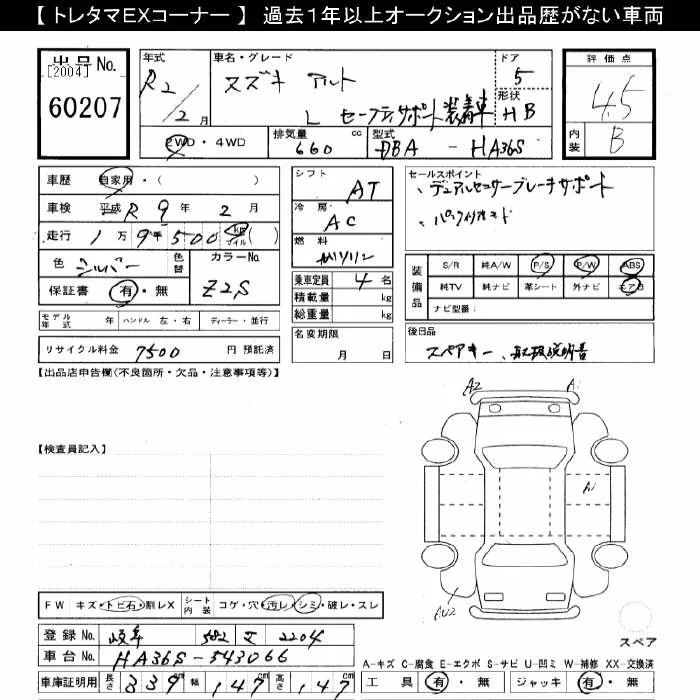 【 トレタマEXコーナー 】 過去１年以上オークション出品歴がない車両
出品No.
[2004]
60207
年式
R2/2月
車名・グレード
スズキ アルト
L セーフティサポート装着車
ドア
5
形状
HB
2WD・4WD
排気量
660 cc
型式
DBA - HA36S
評価点
4.5
内装
B
車歴 自家用・( )
車検 平成 R9年 2月
走行 1万9千500 km マイル ( )
色 シルバー 色替
カラーNo.
Z2S
保証書 有・無
モデル年式 年 ハンドル 左・右 ディーラー・並行
リサイクル料金 7500 円 預託済
シフト
AT
冷房
AC
燃料
ガソリン
乗車定員 4 名
積載量 kg
総重量 kg
名変期限
月 日
セールスポイント
、デュアルセンサーブレーキサポート
装備品
S/R 純A/W P/S P/W ABS
純TV 純ナビ 革シート 外ナビ エアB
ナビ型番：
後日品
スペアキー、取扱説明書
【出品店申告欄(不良箇所・欠品・注意事項等)】
【検査員記入】
A2 A1
A1
AU2
FW キズ・トビ石・割レX シート内装 コゲ・穴・汚レ・シミ・破レ・スレ
登録No. 岐阜 582 2204
車台No. HA36S-543066
車庫証明用 長さ 339 幅 147 高さ 147 cm
スペア
A-キズ C-腐食 E-エクボ S-サビ U-凹ミ W-補修 XX-交換済
工具 有・無 ジャッキ 有・無